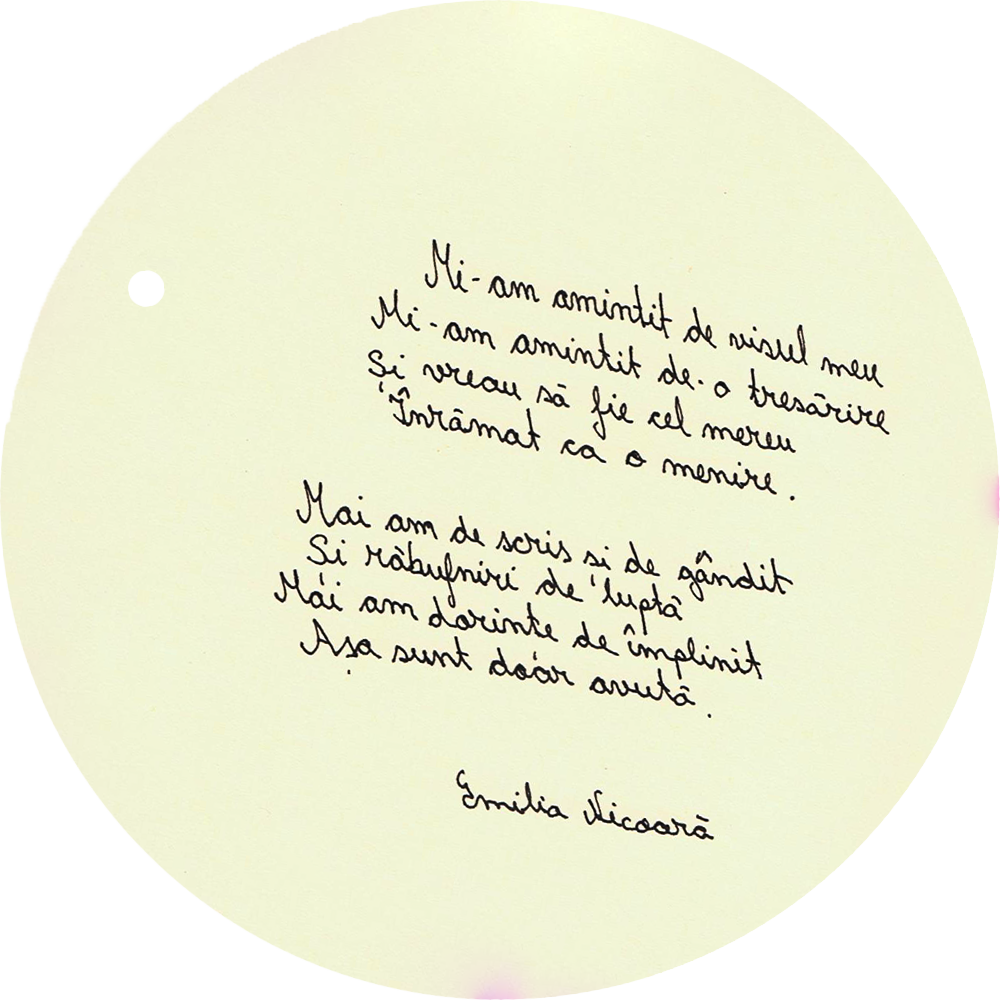 Mi-am amintit de visul meu
Mi-am amintit de-o tresărire
Și vreau să fie cel mereu
Înrămat ca o menire.
Mai am de scris și de gândit
Și răbufniri de luptă
Mai am dorințe de împlinit
Așa sunt doar avută.
Emilia Nicoară